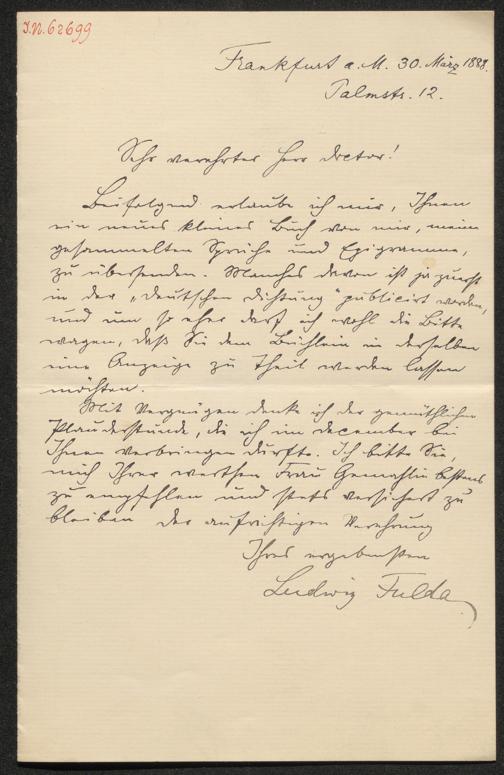 J.N. 62699
Frankfurt a. M. 30. März 1888.
Palmstr. 12.
Sehr verehrter Herr Doctor!
Beifolgend erlaube ich mir, Ihnen
ein neues kleines Buch von mir, meine
gesammelten Sprüche und Epigramme,
zu übersenden. Manches davon ist ja zuerst
in der „Deutschen Dichtung" publicirt worden,
und um so eher darf ich wohl die Bitte
wagen, daß Sie dem Büchlein in derselben
eine Anzeige zu Theil werden lassen
möchten.
Mit Vergnügen denke ich der gemüthlichen
Plauderstunde, die ich im December bei
Ihnen verbringen durfte. Ich bitte Sie,
mich Ihrer werthen Frau Gemahlin bestens
zu empfehlen und stets versichert zu
bleiben der aufrichtigen Verehrung
Ihres ergebensten
Ludwig Fulda